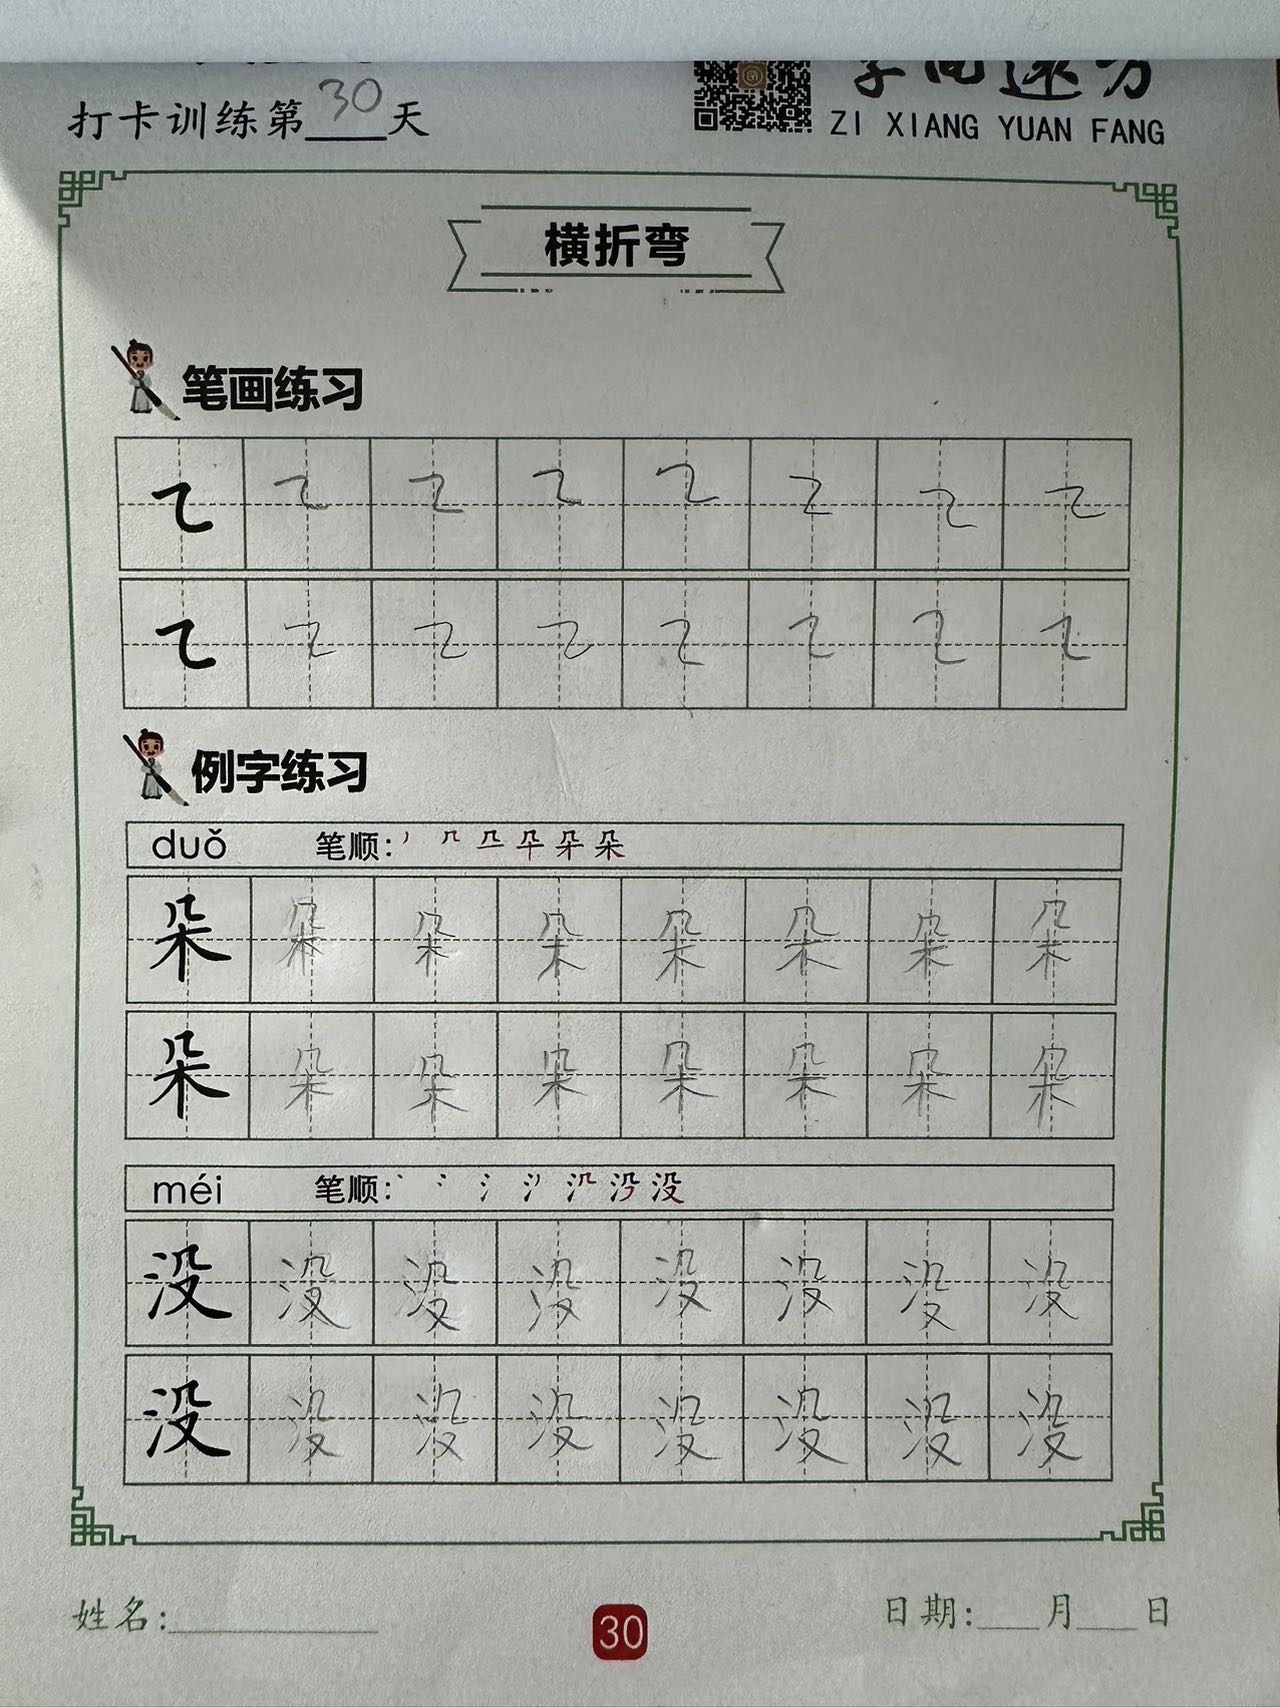 打卡训练第30天
ZI XIANG YUAN FANG
横折弯
笔画练习
㇍ ㇍ ㇍ ㇍ ㇍ ㇍ ㇍ ㇍
㇍ ㇍ ㇍ ㇍ ㇍ ㇍ ㇍ ㇍
例字练习
duǒ 笔顺:
朵 朵 朵 朵 朵 朵 朵 朵
朵 朵 朵 朵 朵 朵 朵 朵
méi 笔顺:
没 没 没 没 没 没 没 没
没 没 没 没 没 没 没 没
姓名:
30
日期: 月 日